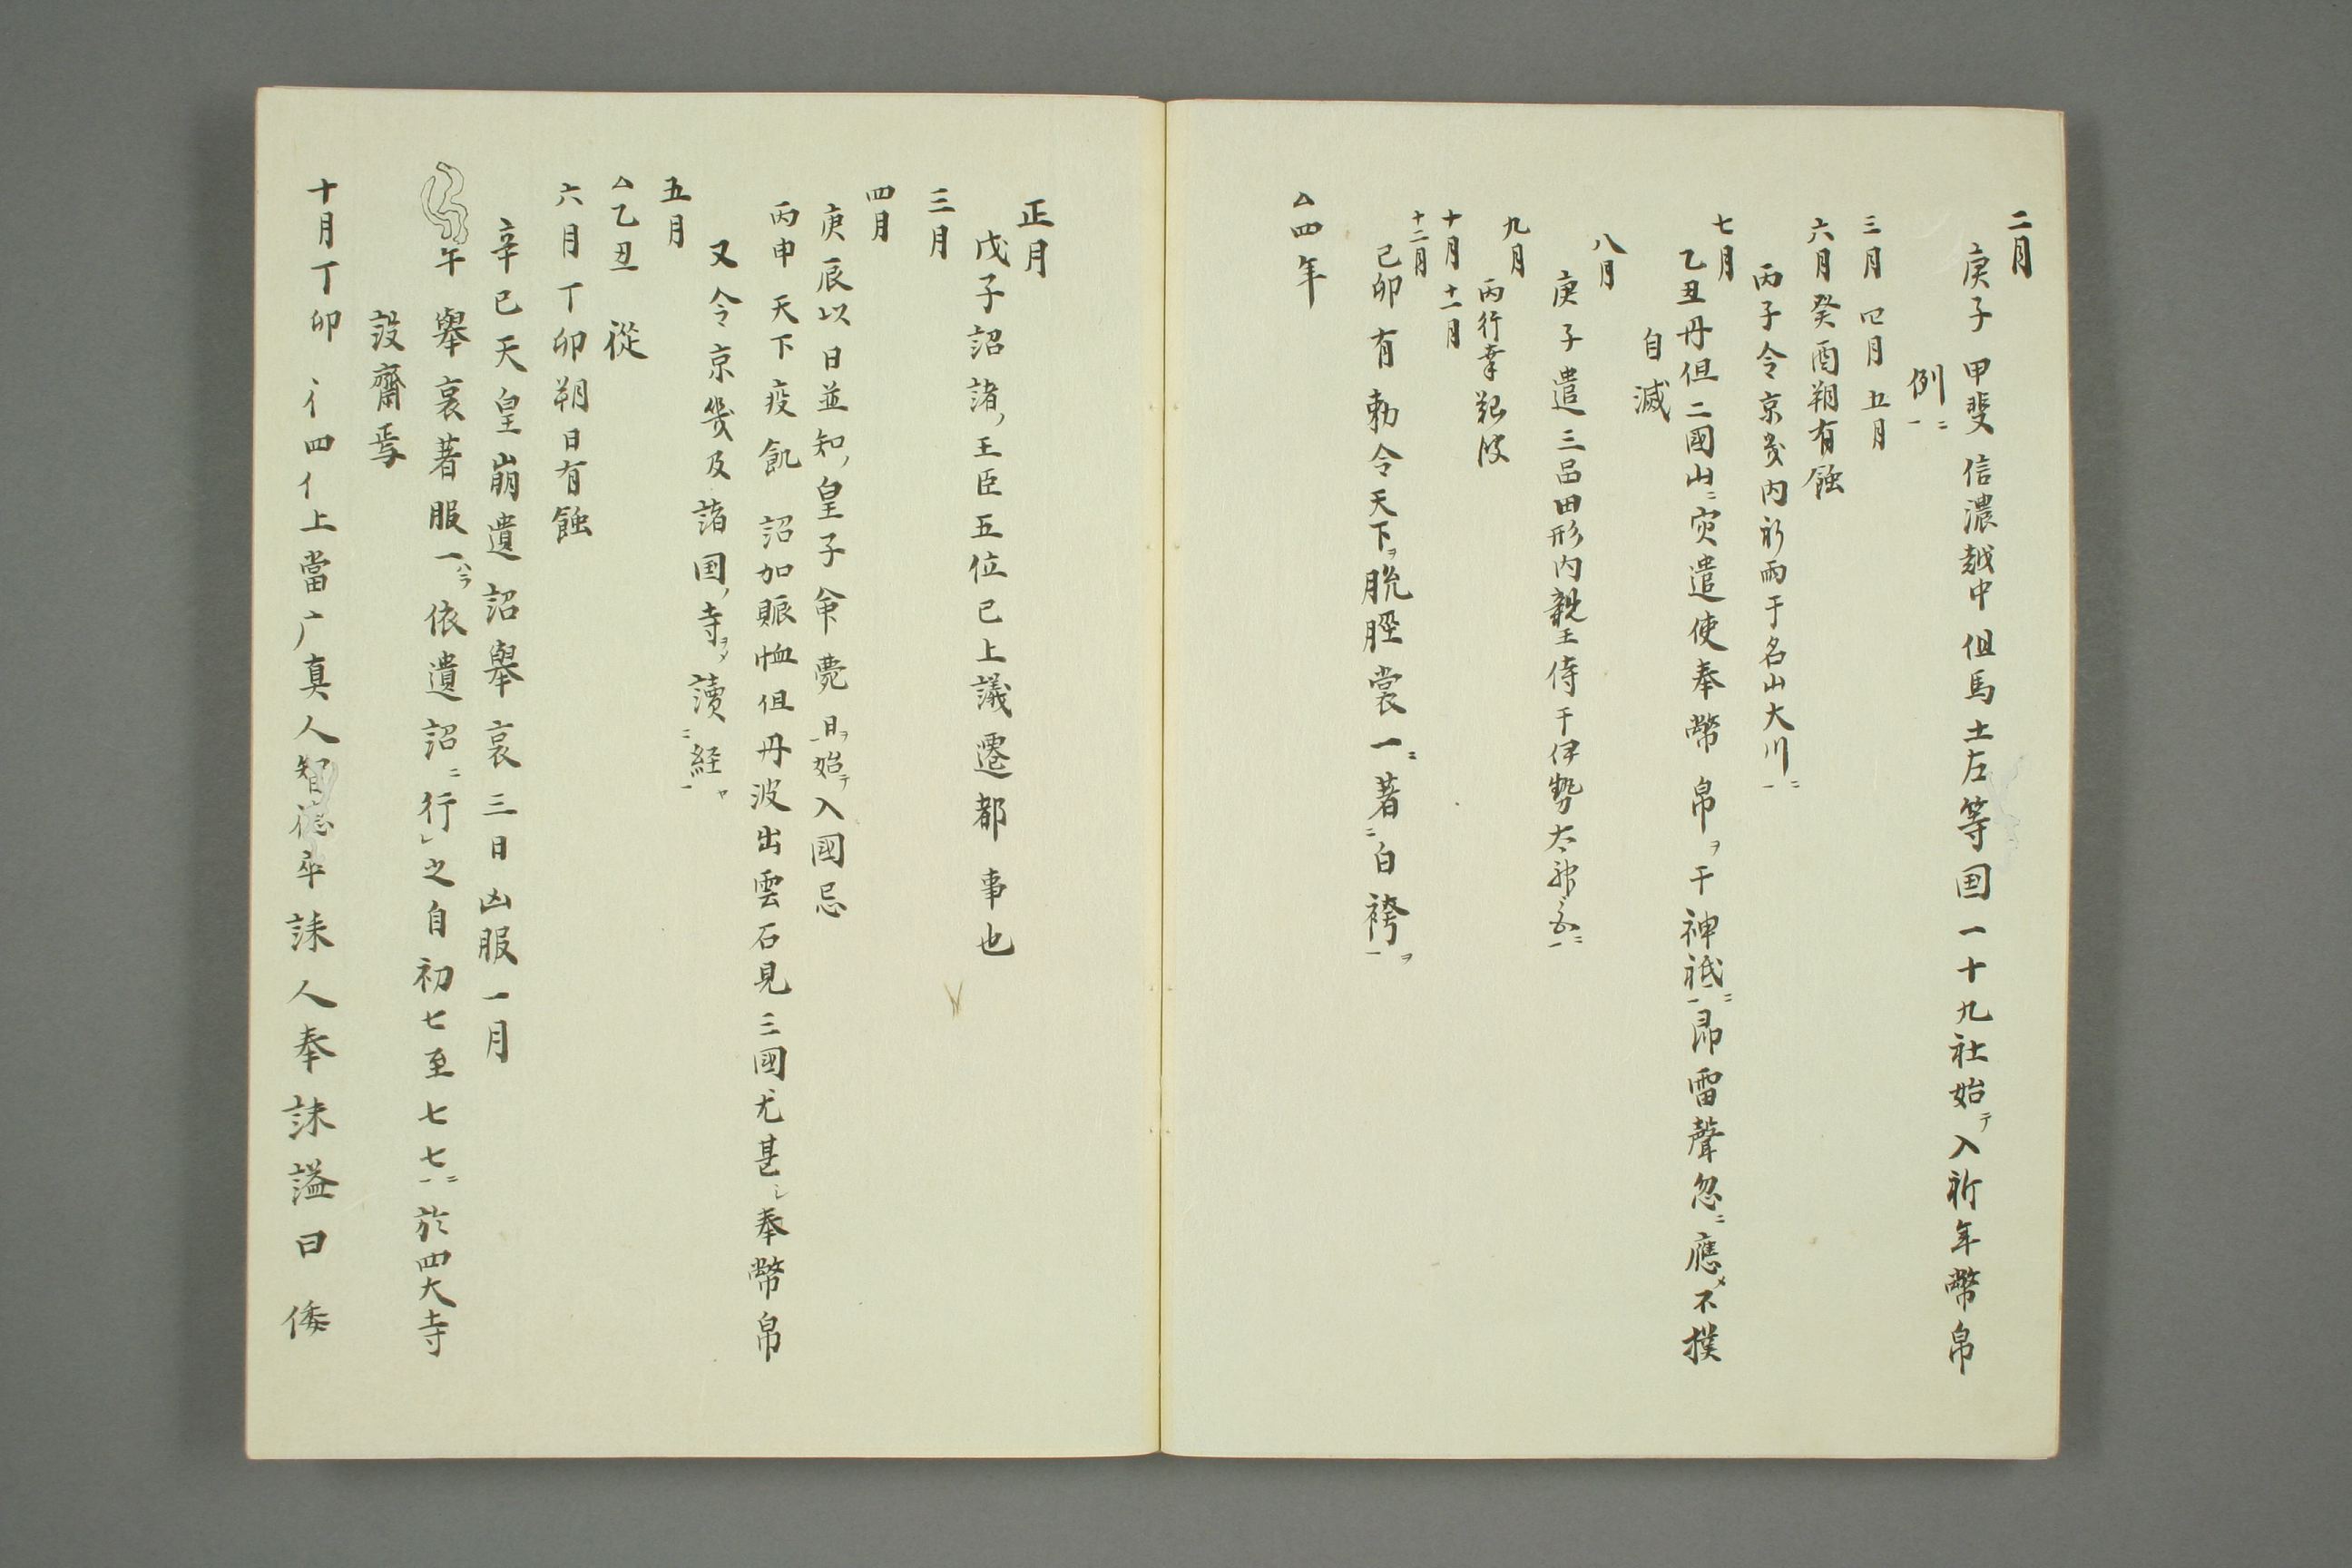 二月
庚子 甲斐 信濃越中 但馬土左等国一十九社始テ入祈年幣帛
例ニ一
三月 四月 五月
六月癸酉朔有蝕
丙子令京畿内祈雨于名山大川ニ一
七月
乙丑丹但二國山ニ灾遣使奉幣帛ヲ于神祗ニ一即雷聲忽ニ應メ不撲
自滅
八月
庚子遣三品田形内親王侍于伊勢太神宮ニ一
九月
丙行幸難波
十月 十一月
十二月
己卯有勅令天下ヲ脱脛裳一ニ著ニ白袴ヲ一
△四年
正月
戊子詔諸王臣五位已上議遷都事也
三月
四月
庚辰以日並知皇子命薨日ヲ一始テ入國忌
丙申 天下疫飢 詔加賑恤但丹波出雲石見三國尤甚シ奉幣帛
又令京畿及諸国寺ヲメ讀ニ経ヲ一
五月
△乙丑 從
六月丁卯朔日有蝕
辛巳天皇崩遺詔舉哀三日凶服一月
午舉哀著服一ハラ依遺詔ニ行之自初七至七七ニ一於四大寺
設齋焉
十月丁卯 四 上當 真人智德卒誄人奉誄謚曰 倭